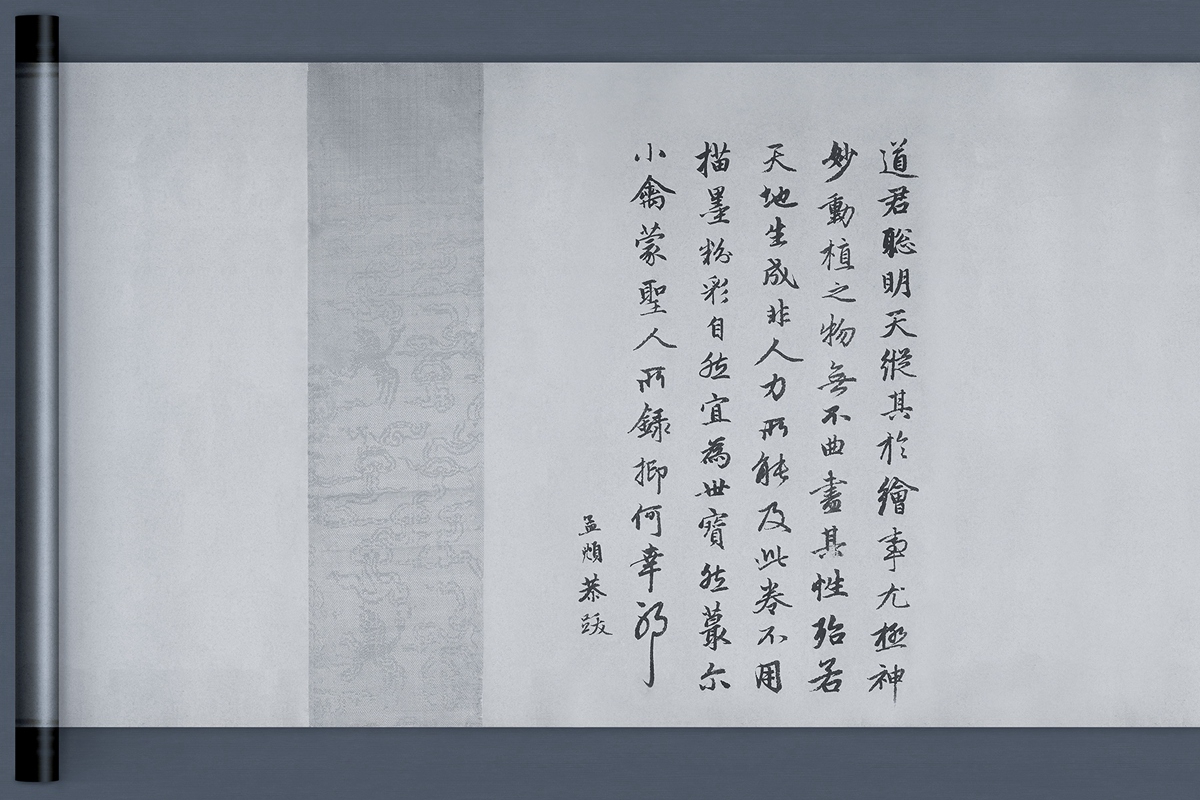 道君聡明天縱其於繪事尤極神
妙動植之物無不曲盡其性殆若
天地生成非人力所能及此卷不用
描墨粉彩自然宜為世寳然蕞尓
小禽蒙聖人所録抑何幸耶
孟頫恭跋